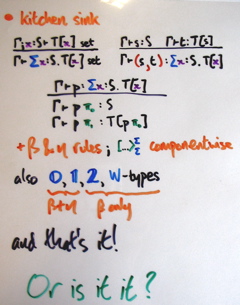 • kitchen sink
Γ; x:S ⊢ T[x] set    Γ ⊢ s:S  Γ ⊢ t:T[s]
Γ ⊢ Σx:S.T[x] set    Γ ⊢ (s,t):Σx:S.T[x]
Γ ⊢ p:Σx:S.T[x]
Γ ⊢ p π₀ : S
Γ ⊢ p π₁ : T[p π₀]
+ β & η rules; componentwise
also 0, 1, 2, W-types
β+η β only
and that's it!
Or is it it?